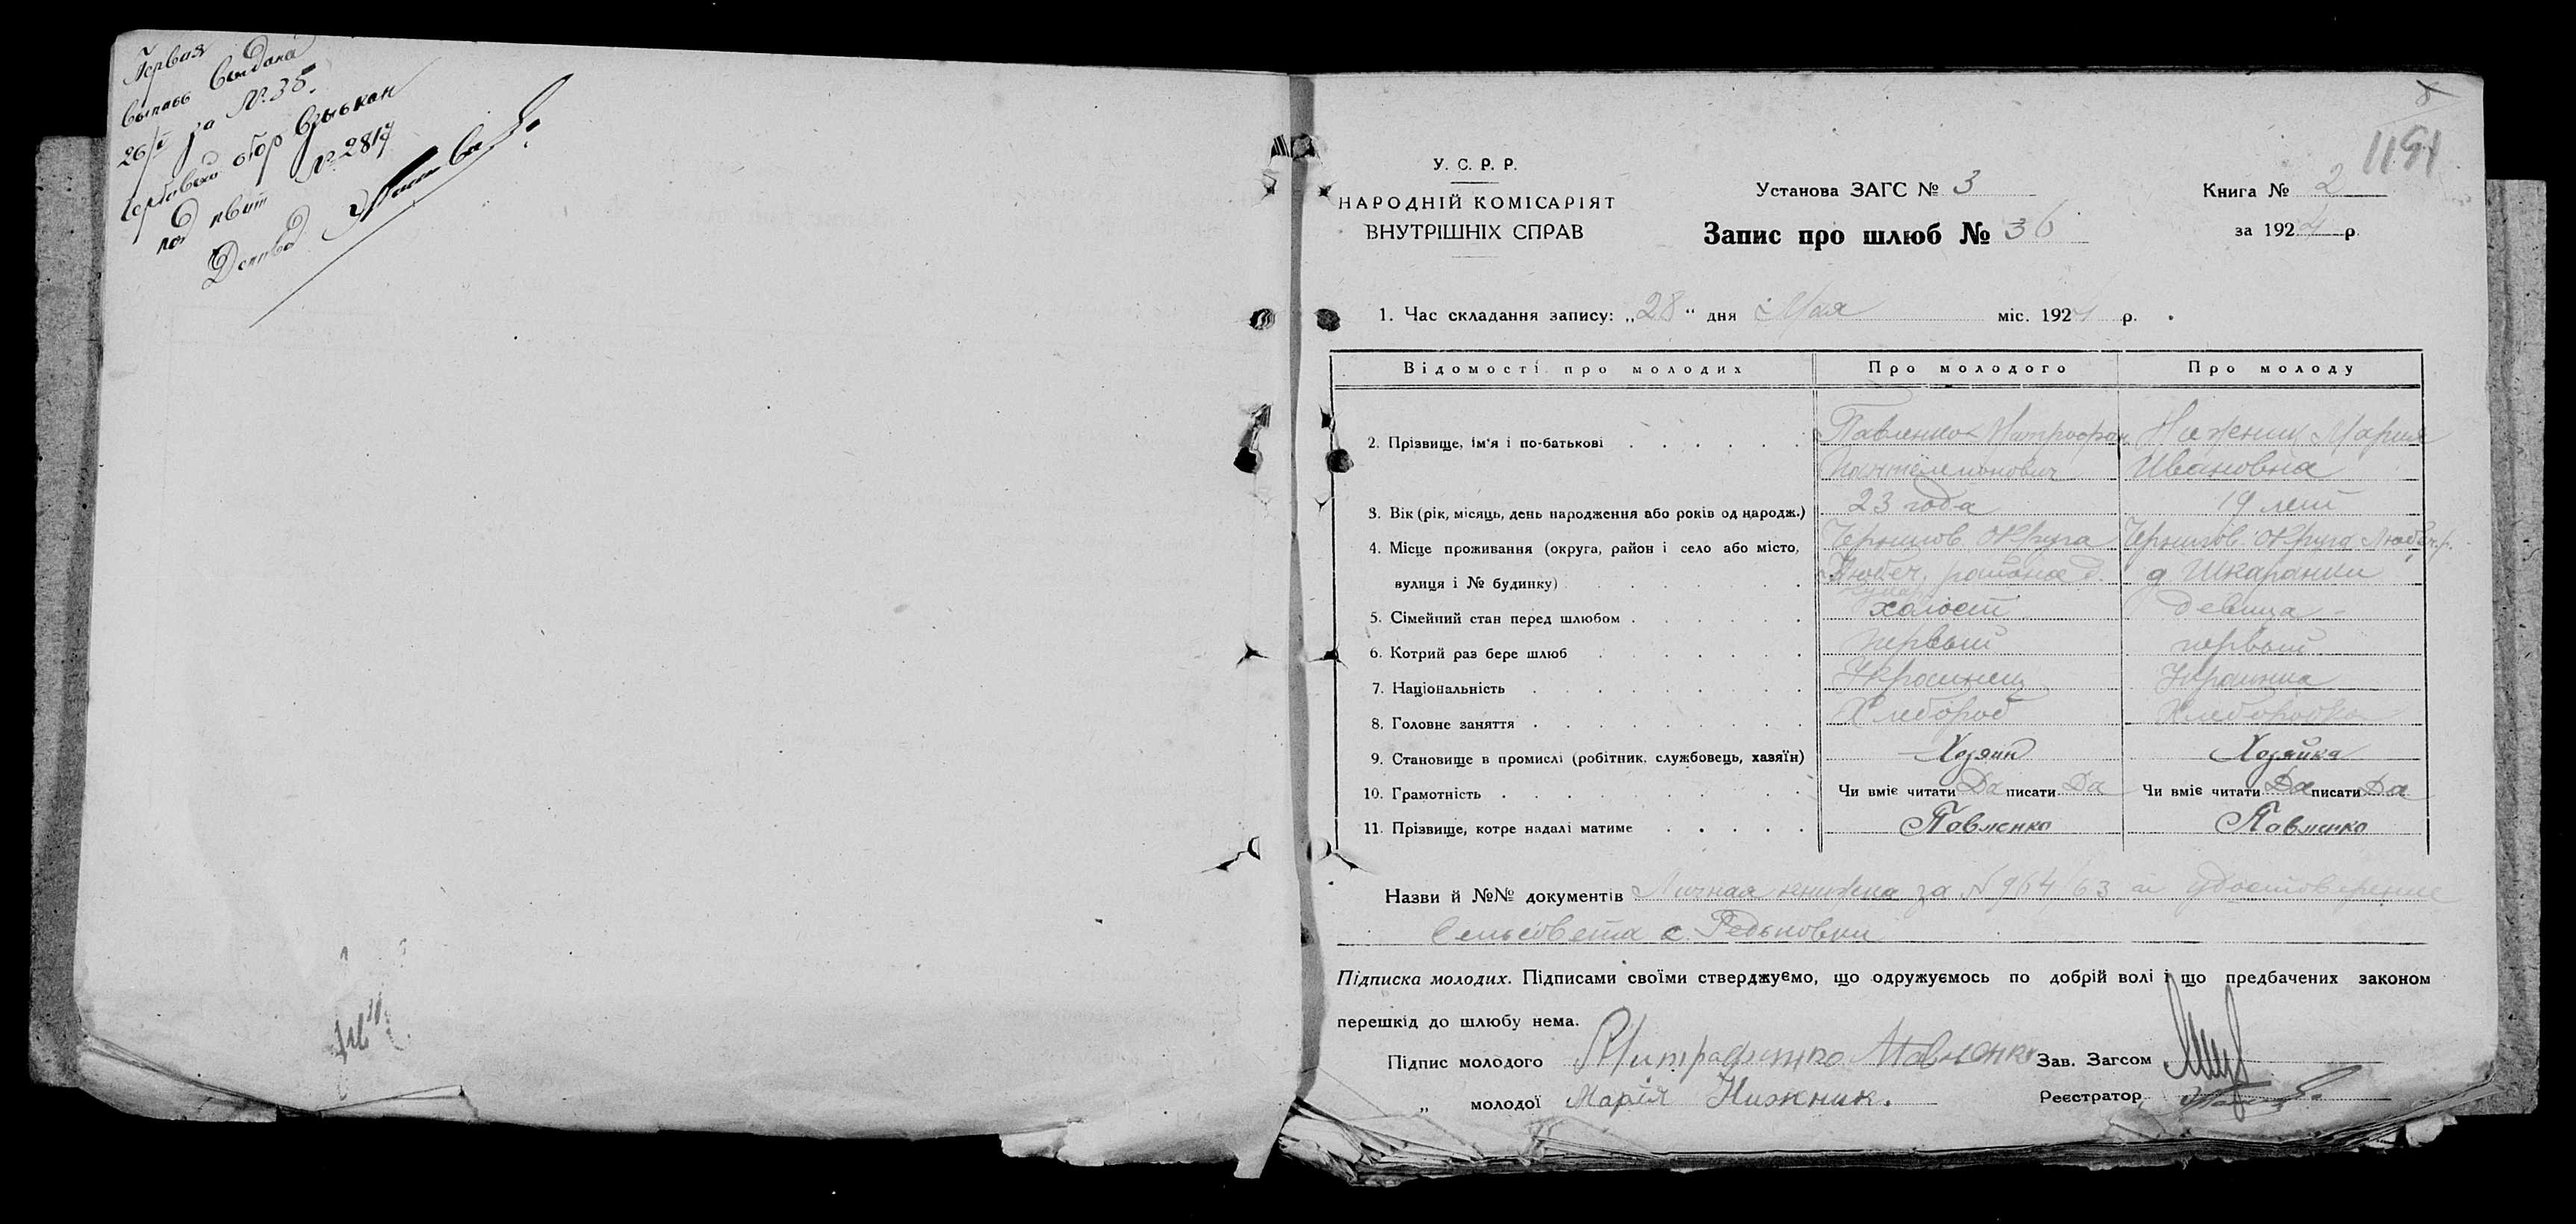 Первая
выпись выдана
26/V за № 35.
гербовый сбор взыскан
под квит № 2817
8
1191
У. С. Р. Р.
НАРОДНІЙ КОМІСАРІЯТ
ВНУТРІШНІХ СПРАВ
Установа ЗАГС № 3
Запис про шлюб № 36
Книга № 2
за 1924 р.
1. Час складання запису: „28" дня Мая міс. 1924 р.
Відомості про молодих Про молодого Про молоду
2. Прізвище, ім'я і по-батькові Павленко Митрофан Ниженик Мария
Пантелемонович Ивановна
3. Вік (рік, місяць, день народження або років од народж.) 23 года 19 лет
4. Місце проживання (округа, район і село або місто, Чернигов. Округа Чернигов. Округа Любеч. р.
вулиця і № будинку) Любеч. района д. д Шкаранки
5. Сімейний стан перед шлюбом холост девица
6. Котрий раз бере шлюб первый первый
7. Національність Украинец Украинка
8. Головне заняття Хлебороб Хлеборобка
9. Становище в промислі (робітник, службовець, хазяїн) Хозяин Хозяйка
10. Грамотність Чи вміє читати Да писати Да Чи вміє читати Да писати Да
11. Прізвище, котре надалі матиме Павленко Павленко
Назви й №№ документів Личная книжка за № 964/63 и удостоверение
Сельсовета с. Редьковки
Підписка молодих. Підписами своїми стверджуємо, що одружуємось по добрій волі і що предбачених законом
перешкід до шлюбу нема.
Підпис молодого Митрафанко Павленко Зав. Загсом
„ молодої Марія Нижник. Реєстратор